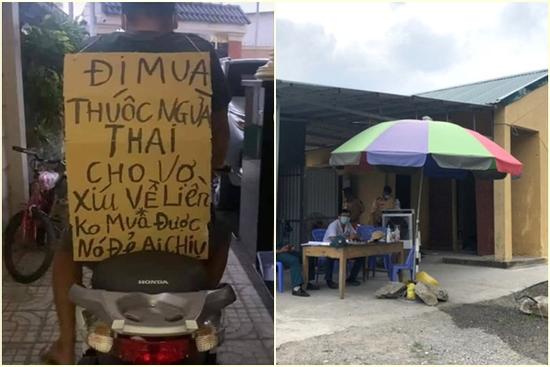 ĐI MUA
THUỐC NGỪA
THAI
CHO VỢ
XÍU VỀ LIỀN
KO MUA ĐƯỢC
NÓ ĐẺ AI CHỊU
HONDA